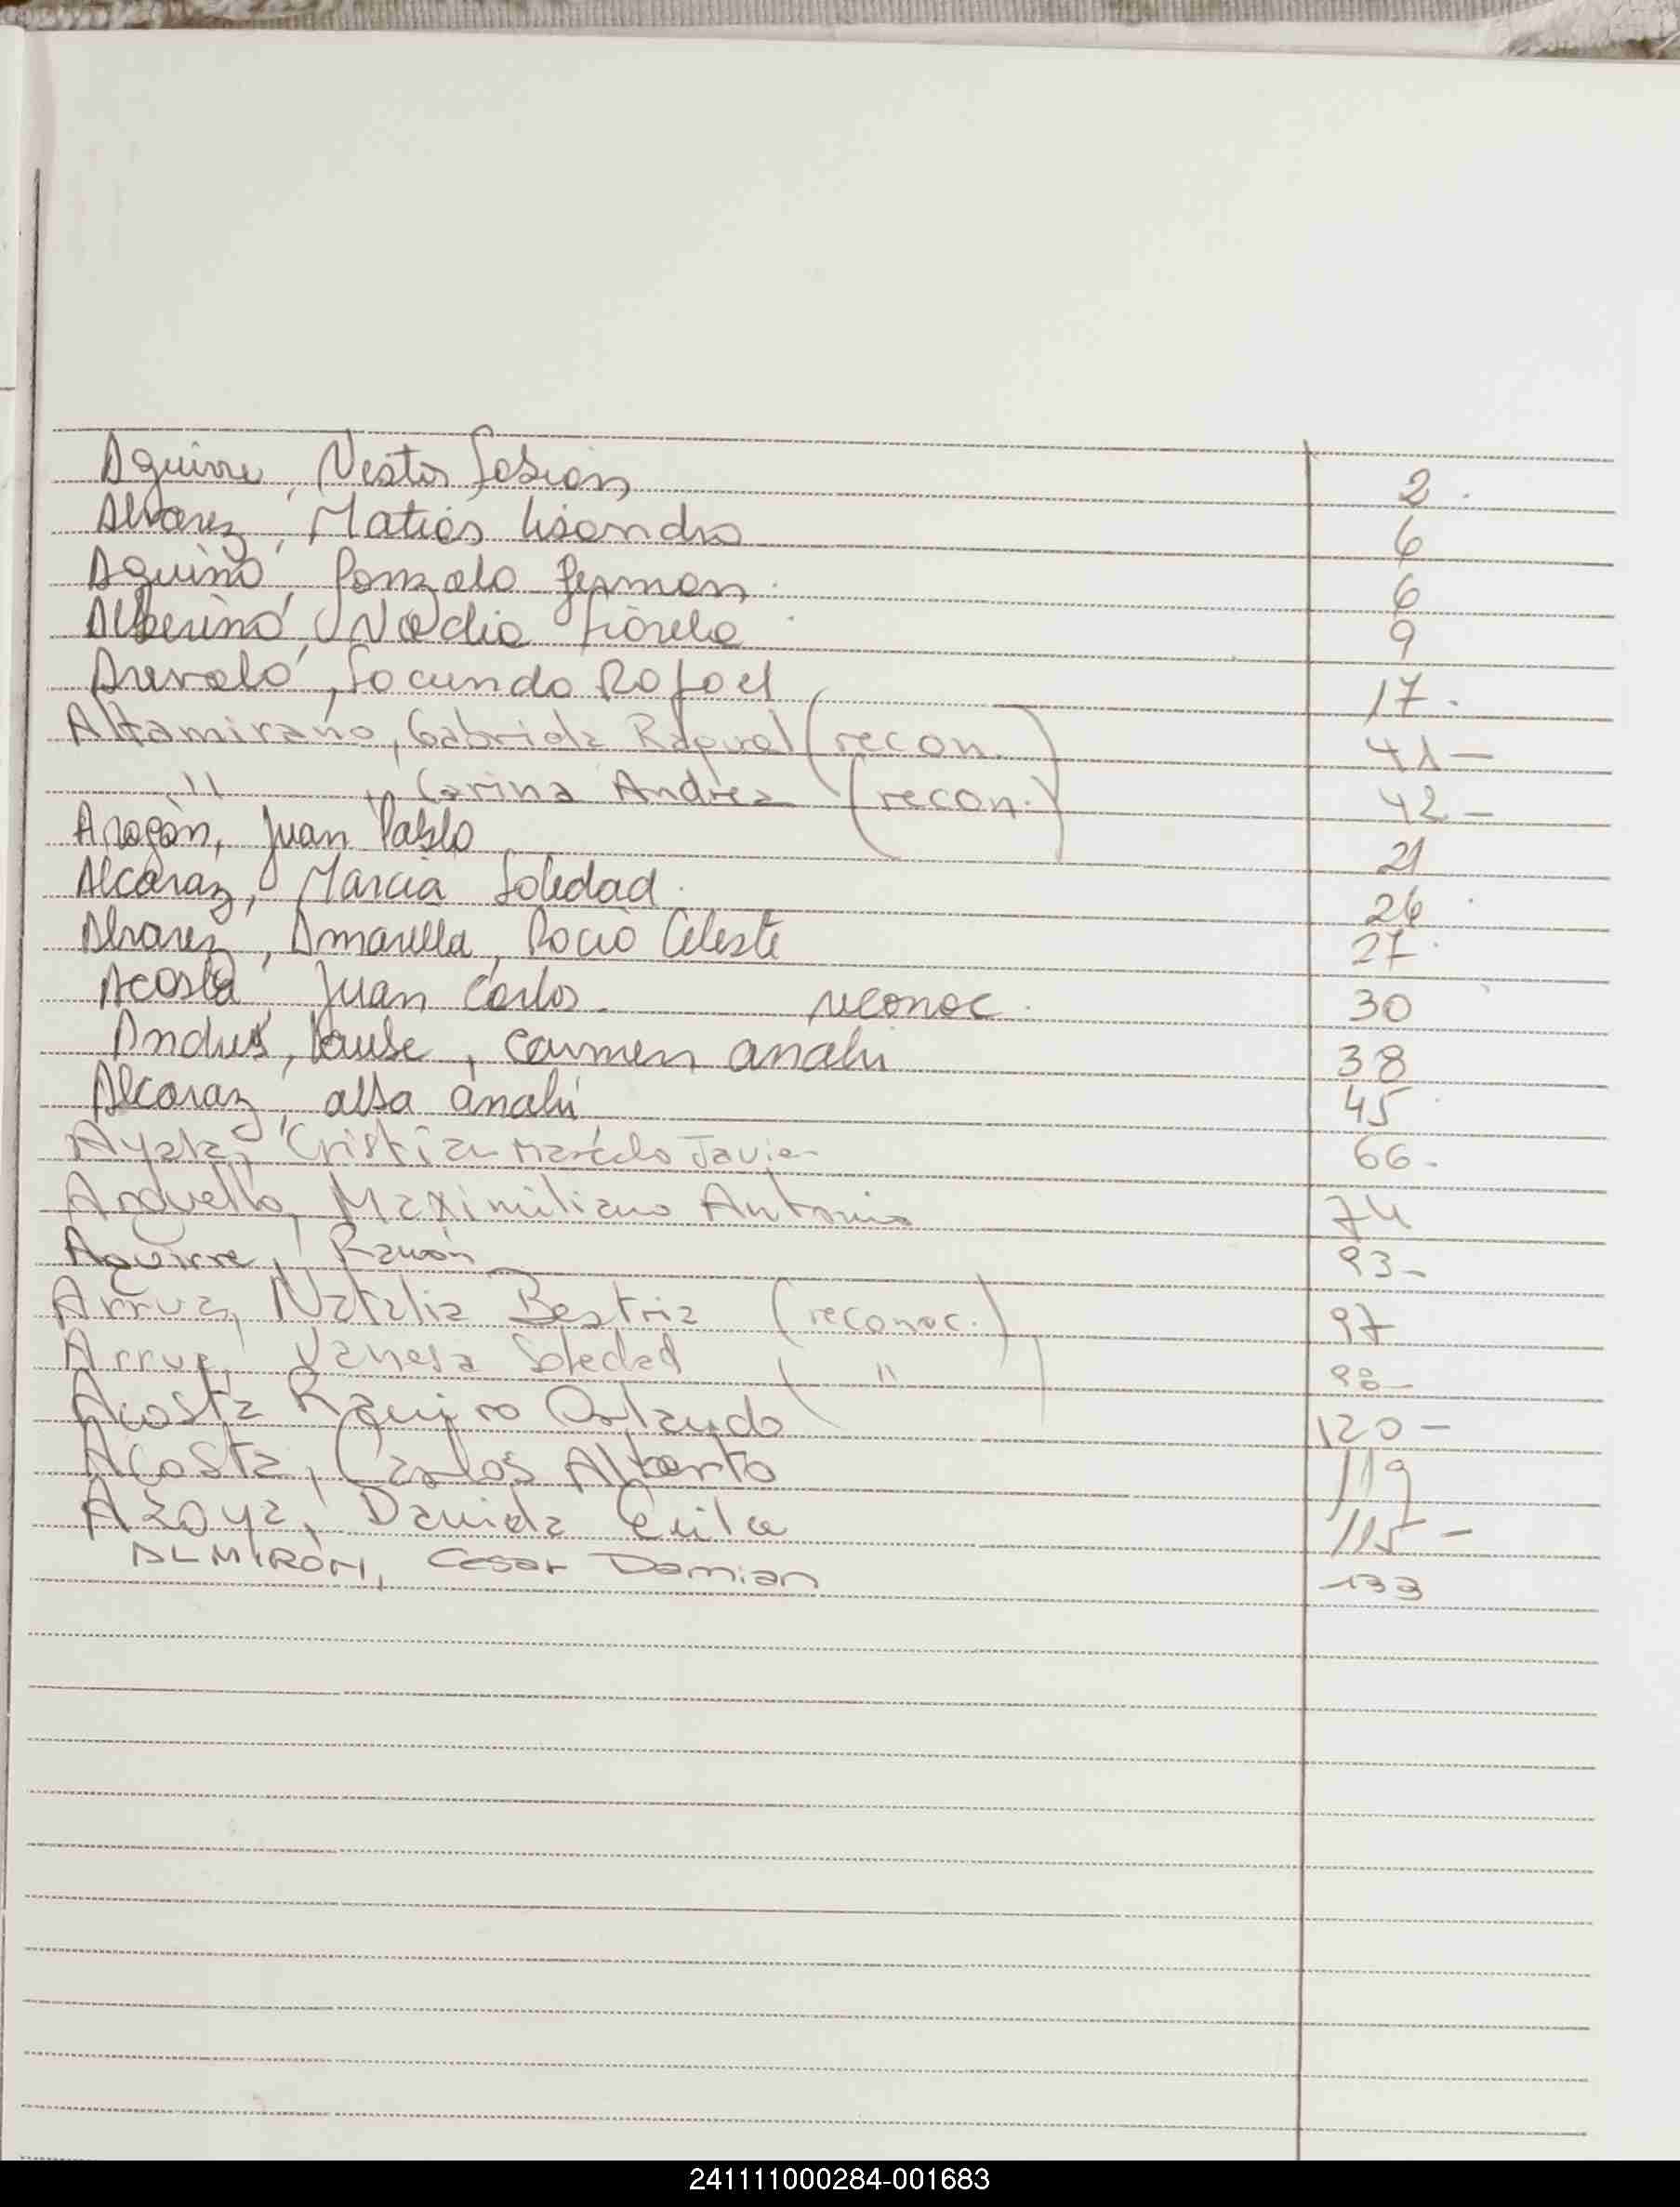 Aguirre, Nestor Fabian 2.
Alvarez, Matias Lisandro 6
Aquino, Gonzalo German. 6
Alberino, Nadia Fiorela 9
Arevalo, Facundo Rafael 17.
Altamirano, Gabriela Raquel (recon.) 41-
" , Carina Andrea (recon.) 42-
Aragón, Juan Pablo 21
Alcaraz, Marcia Soledad. 26.
Alvarez, Amarella, Rocio Celeste 27.
Acosta, Juan Carlos. reconoc. 30
Andres, , Carmen anahi 38
Alcaraz, alba anahi 45
Ayala, Cristian Marcelo Javier 66.
Arguello, Maximiliano Antonio 74
Aguirre, Ramón 93-
Arrua, Natalia Beatriz (reconoc.) 97
Arrua, Vanesa Soledad ( " ) 98-
Acosta Ramiro Orlando 120-
Acosta, Carlos Alberto 119
Azoya, Daniela 115-
ALMIRÓN, Cesar Damian 133
241111000284-001683